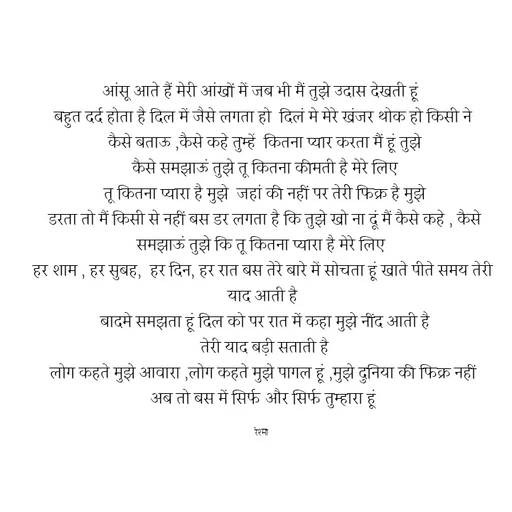 आंसू आते हैं मेरी आंखों में जब भी मैं तुझे उदास देखती हूं
बहुत दर्द होता है दिल में जैसे लगता हो  दिलं मे मेरे खंजर थोक हो किसी ने
कैसे बताऊ ,कैसे कहे तुम्हें  कितना प्यार करता मैं हूं तुझे
कैसे समझाऊं तुझे तू कितना कीमती है मेरे लिए
तू कितना प्यारा है मुझे  जहां की नहीं पर तेरी फिक्र है मुझे
डरता तो मैं किसी से नहीं बस डर लगता है कि तुझे खो ना दूं मैं कैसे कहे , कैसे
समझाऊं तुझे कि तू कितना प्यारा है मेरे लिए
हर शाम , हर सुबह,  हर दिन, हर रात बस तेरे बारे में सोचता हूं खाते पीते समय तेरी
याद आती है
बादमे समझता हूं दिल को पर रात में कहा मुझे नींद आती है
तेरी याद बड़ी सताती है
लोग कहते मुझे आवारा ,लोग कहते मुझे पागल हूं ,मुझे दुनिया की फिक्र नहीं
अब तो बस में सिर्फ और सिर्फ तुम्हारा हूं
रेश्मा